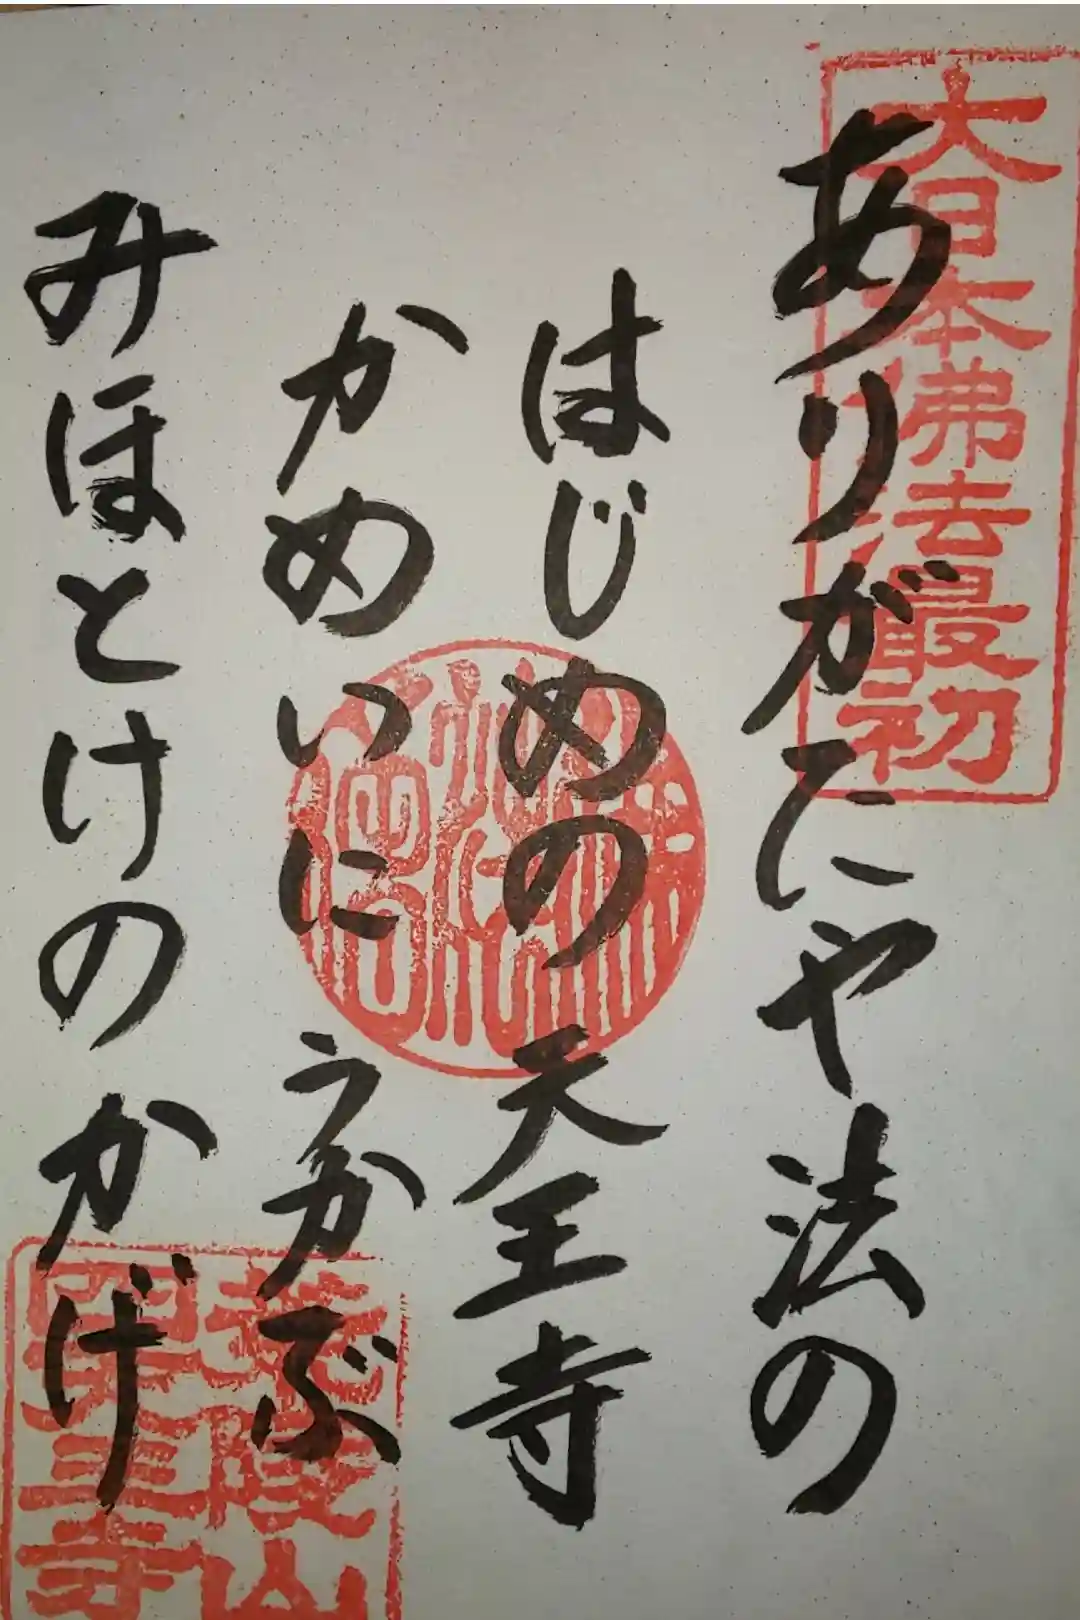 ありがたや法の
はじめの天王寺
かめいにうかぶ
みほとけのかげ
大日本佛法最初
荒陵山
四天王寺